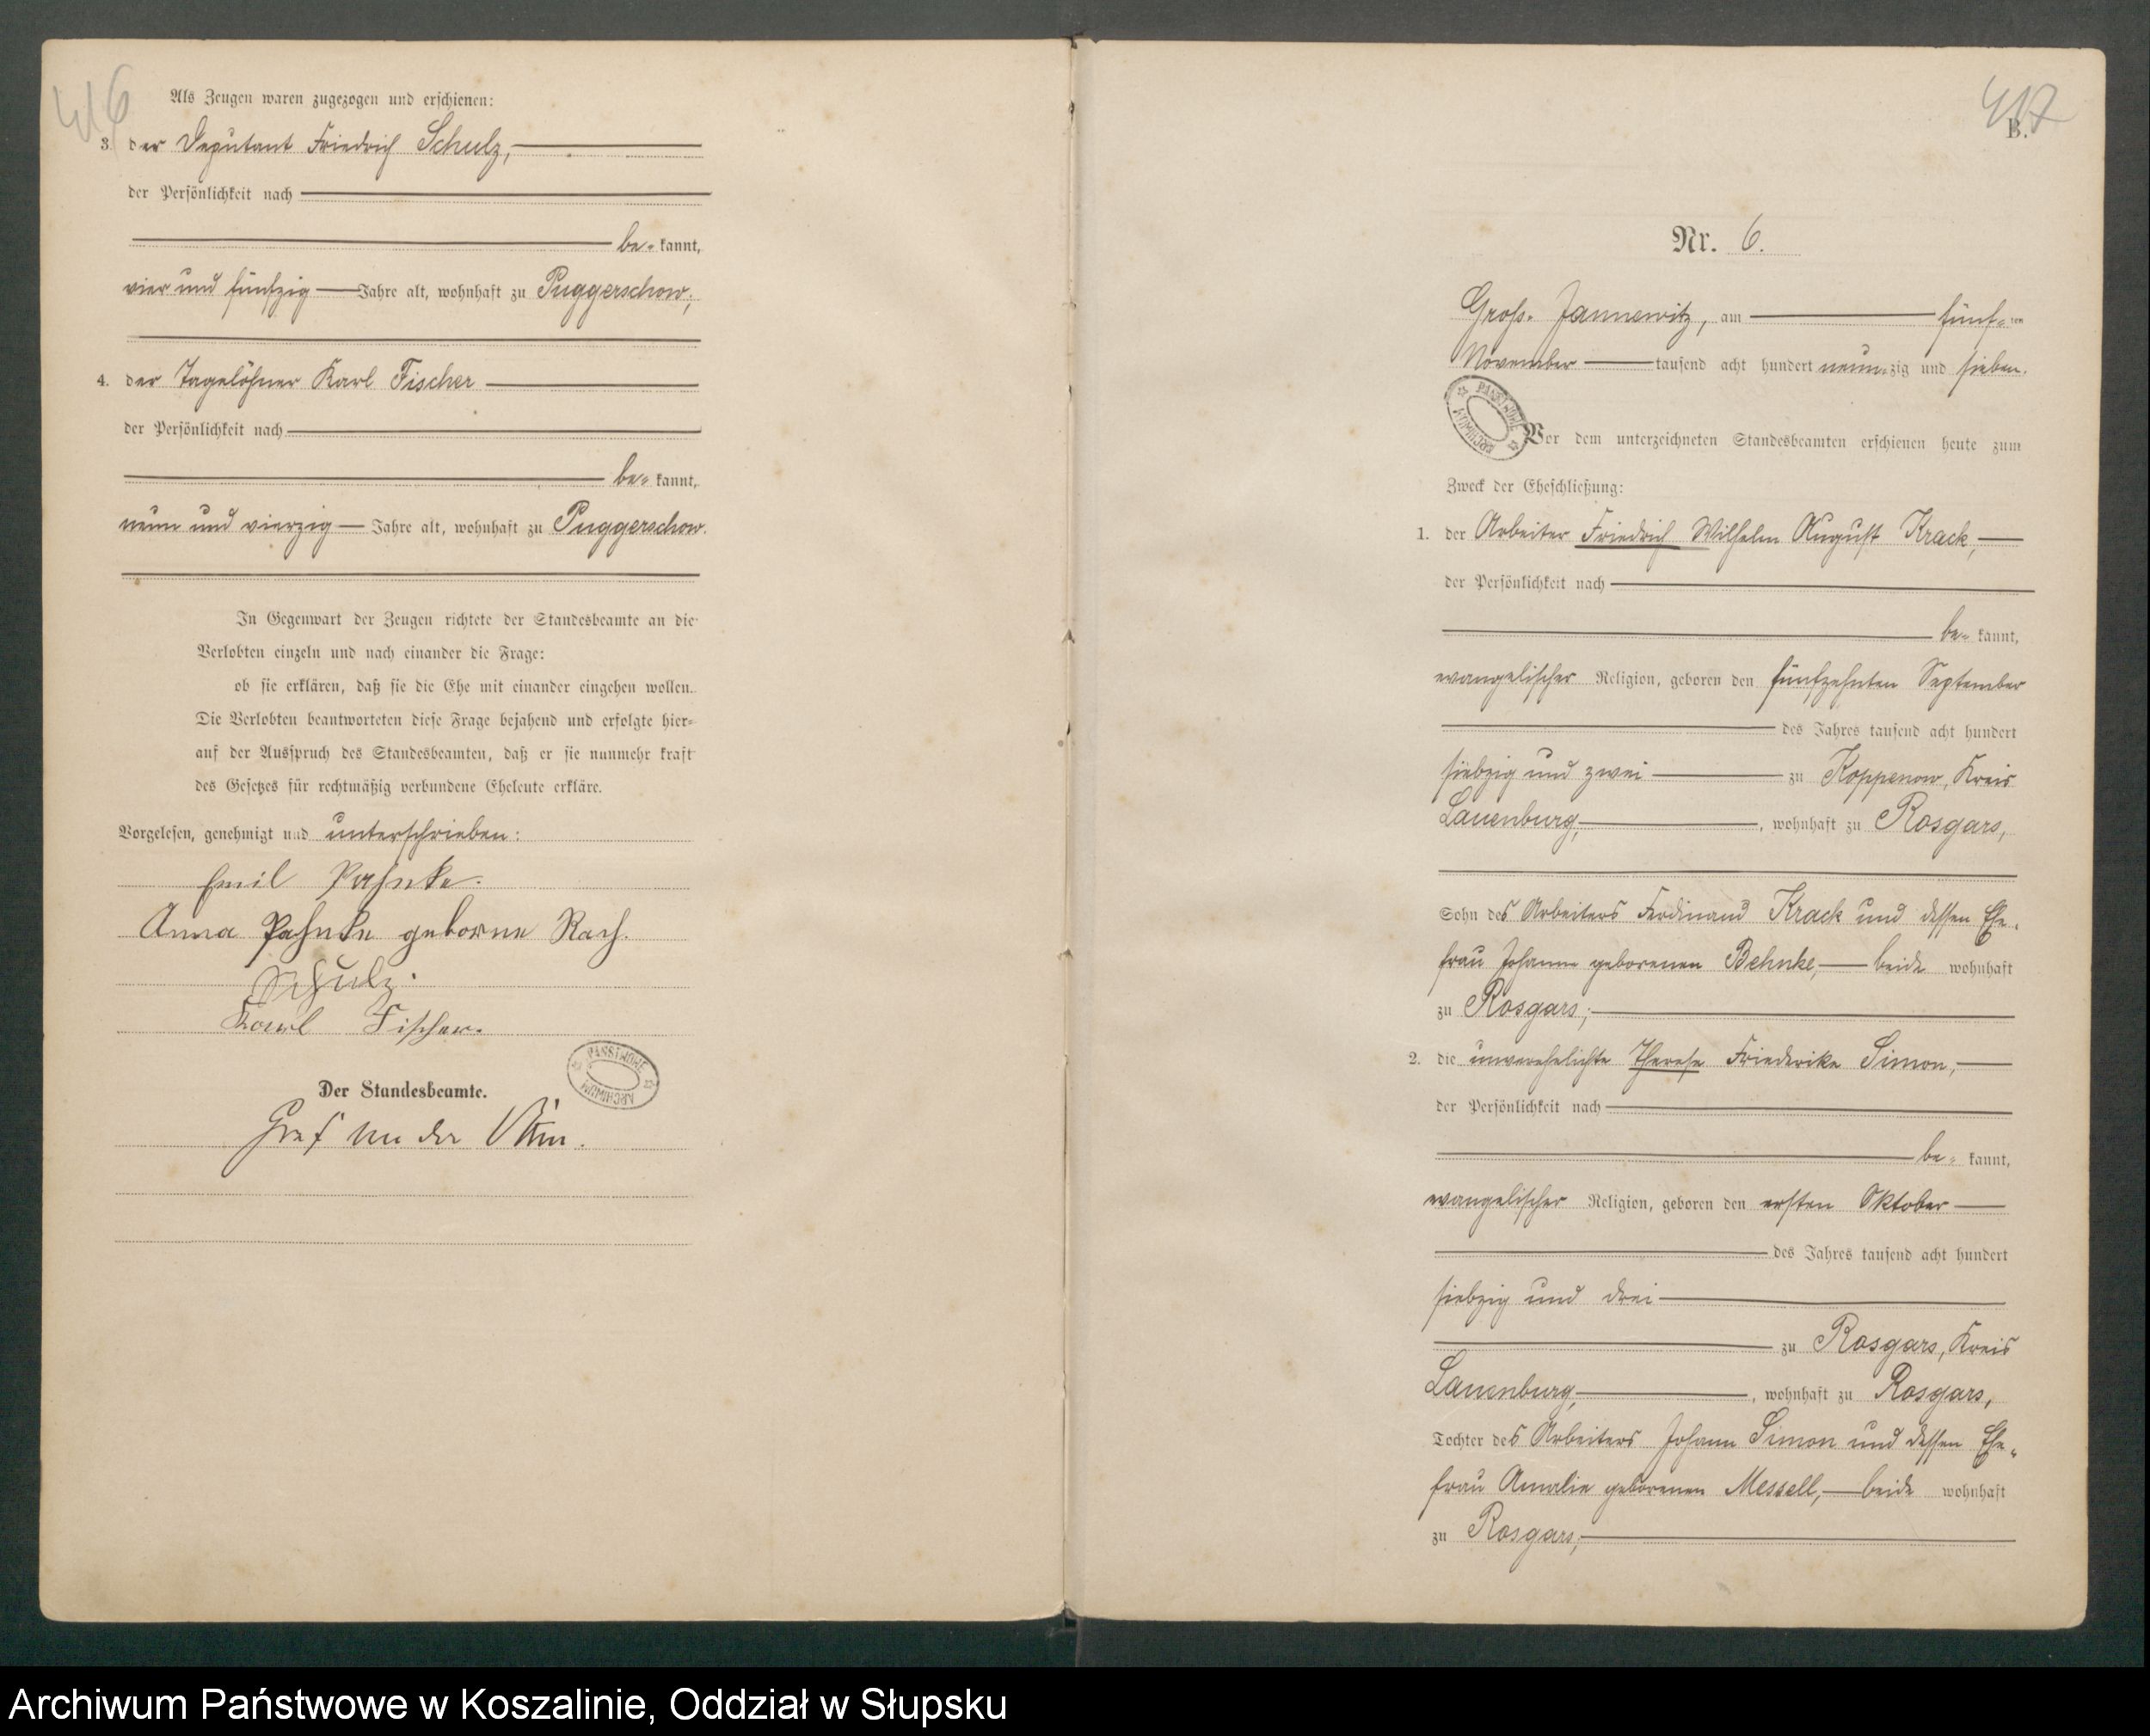 416
Als Zeugen waren zugezogen und erschienen:
3. der Deputant Friedrich Schulz,
der Persönlichkeit nach
be= kannt,
vier und fünfzig Jahre alt, wohnhaft zu Puggerschow;
4. der Tagelöhner Karl Fischer
der Persönlichkeit nach
be= kannt,
neun und vierzig Jahre alt, wohnhaft zu Puggerschow.
In Gegenwart der Zeugen richtete der Standesbeamte an die
Verlobten einzeln und nach einander die Frage:
ob sie erklären, daß sie die Ehe mit einander eingehen wollen.
Die Verlobten beantworteten diese Frage bejahend und erfolgte hier=
auf der Ausspruch des Standesbeamten, daß er sie nunmehr kraft
des Gesetzes für rechtmäßig verbundene Eheleute erkläre.
Vorgelesen, genehmigt und unterschrieben:
Emil Pahnke.
Anna Pahnke geborne Rach.
Schulz.
Karl Fischer.
ARCHIWUM PAŃSTWOWE
Der Standesbeamte.
Graf von der
417
B.
Nr. 6.
Gross= Jannewitz, am fünf=ten
November tausend acht hundert neun=zig und sieben.
ARCHIWUM PAŃSTWOWE
Vor dem unterzeichneten Standesbeamten erschienen heute zum
Zweck der Eheschließung:
1. der Arbeiter Friedrich Wilhelm August Krack,
der Persönlichkeit nach
be= kannt,
evangelischer Religion, geboren den fünfzehnten September
des Jahres tausend acht hundert
siebzig und zwei zu Koppenow, Kreis
Lauenburg, , wohnhaft zu Rosgars,
Sohn des Arbeiters Ferdinand Krack und dessen Ehe=
frau Johanne geborenen Behnke, beide wohnhaft
zu Rosgars;
2. die unverehelichte Therese Friederike Simon,
der Persönlichkeit nach
be= kannt,
evangelischer Religion, geboren den ersten Oktober
des Jahres tausend acht hundert
siebzig und drei
zu Rosgars, Kreis
Lauenburg, , wohnhaft zu Rosgars,
Tochter des Arbeiters Johann Simon und dessen Ehe=
frau Amalie geborenen Messell, beide wohnhaft
zu Rosgars;
Archiwum Państwowe w Koszalinie, Oddział w Słupsku